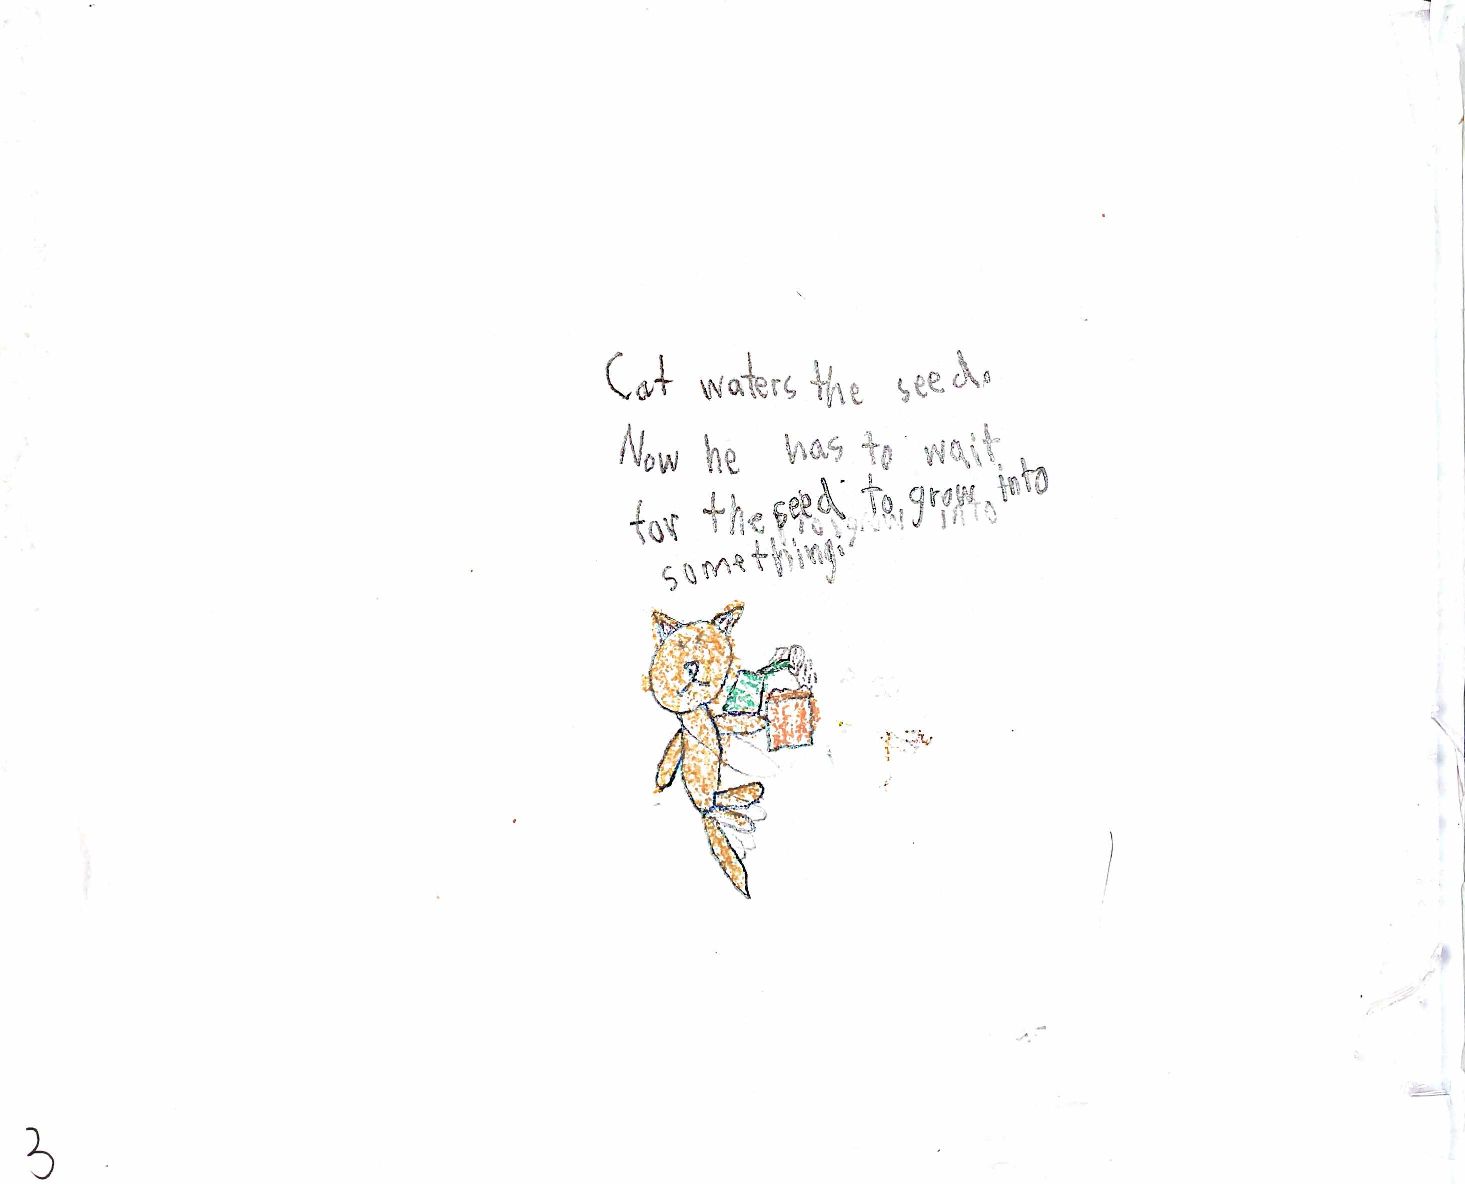 Cat waters the seed.
Now he has to wait
for the seed to grow into
something.
3